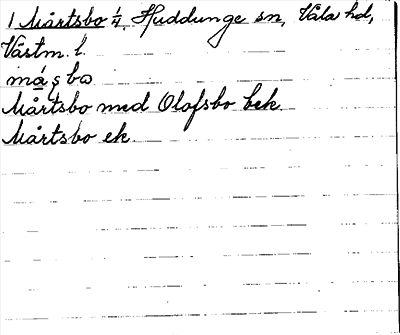 1 Mårtsbo 1/4, Huddunge sn, Våla hd,
Västm. l.
måsbo
Mårtsbo med Olofsbo bek.
Mårtsbo ek.